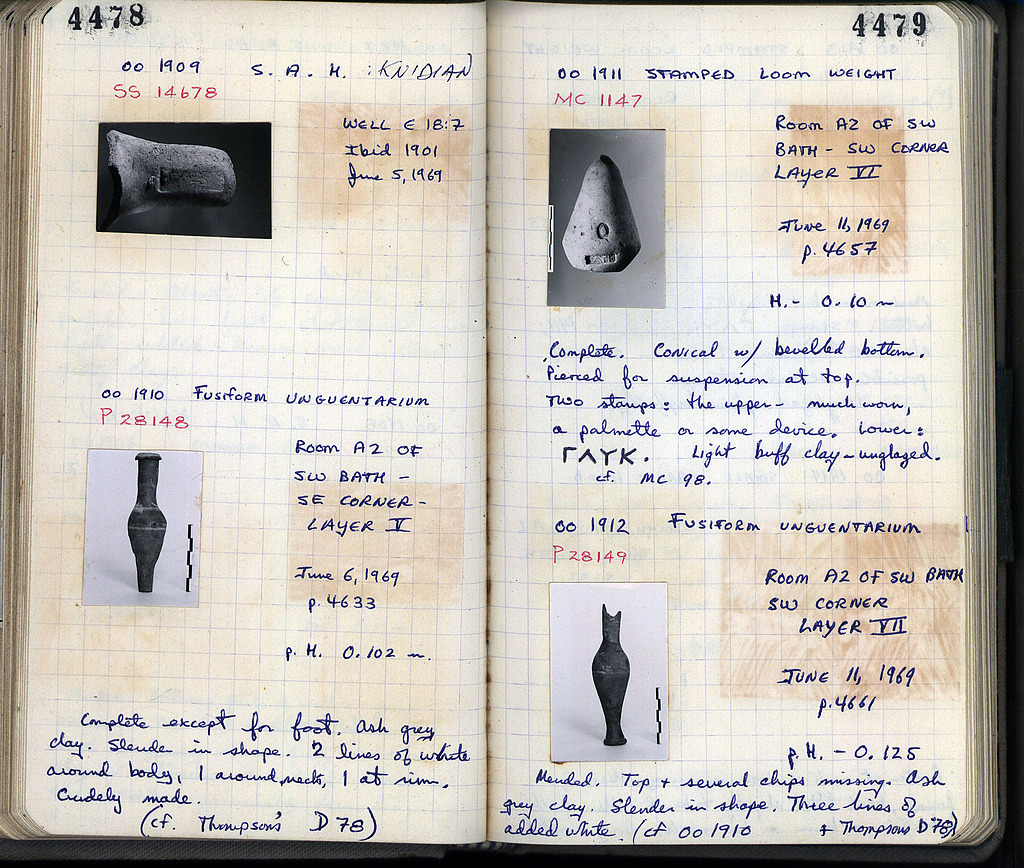 4478
OO 1909 S. A. H. : KNIDIAN
SS 14678
WELL E 18:7
Ibid 1901
June 5, 1969
OO 1910 FUSIFORM UNGUENTARIUM
P 28148
ROOM A2 OF
SW BATH -
SE CORNER -
LAYER V
June 6, 1969
p. 4633
p. H. 0.102 m.
Complete except for foot. Ash grey
clay. Slender in shape. 2 lines of white
around body, 1 around neck, 1 at rim.
Crudely made.
(cf. Thompson's D 78)
4479
OO 1911 STAMPED LOOM WEIGHT
MC 1147
ROOM A2 OF SW
BATH - SW CORNER
LAYER VI
JUNE 11, 1969
p. 4657
H. - 0.10 m
Complete. Conical w/ bevelled bottom.
Pierced for suspension at top.
Two stamps: the upper - much worn,
a palmette or some device. Lower:
ΓΛΥΚ. Light buff clay - unglazed.
cf. MC 98.
OO 1912 FUSIFORM UNGUENTARIUM
P 28149
ROOM A2 OF SW BATH
SW CORNER
LAYER VII
JUNE 11, 1969
p. 4661
p. H. - 0.125
Mended. Top + several chips missing. Ash
grey clay. Slender in shape. Three lines of
added white. (cf OO 1910 + Thompson's D 78)